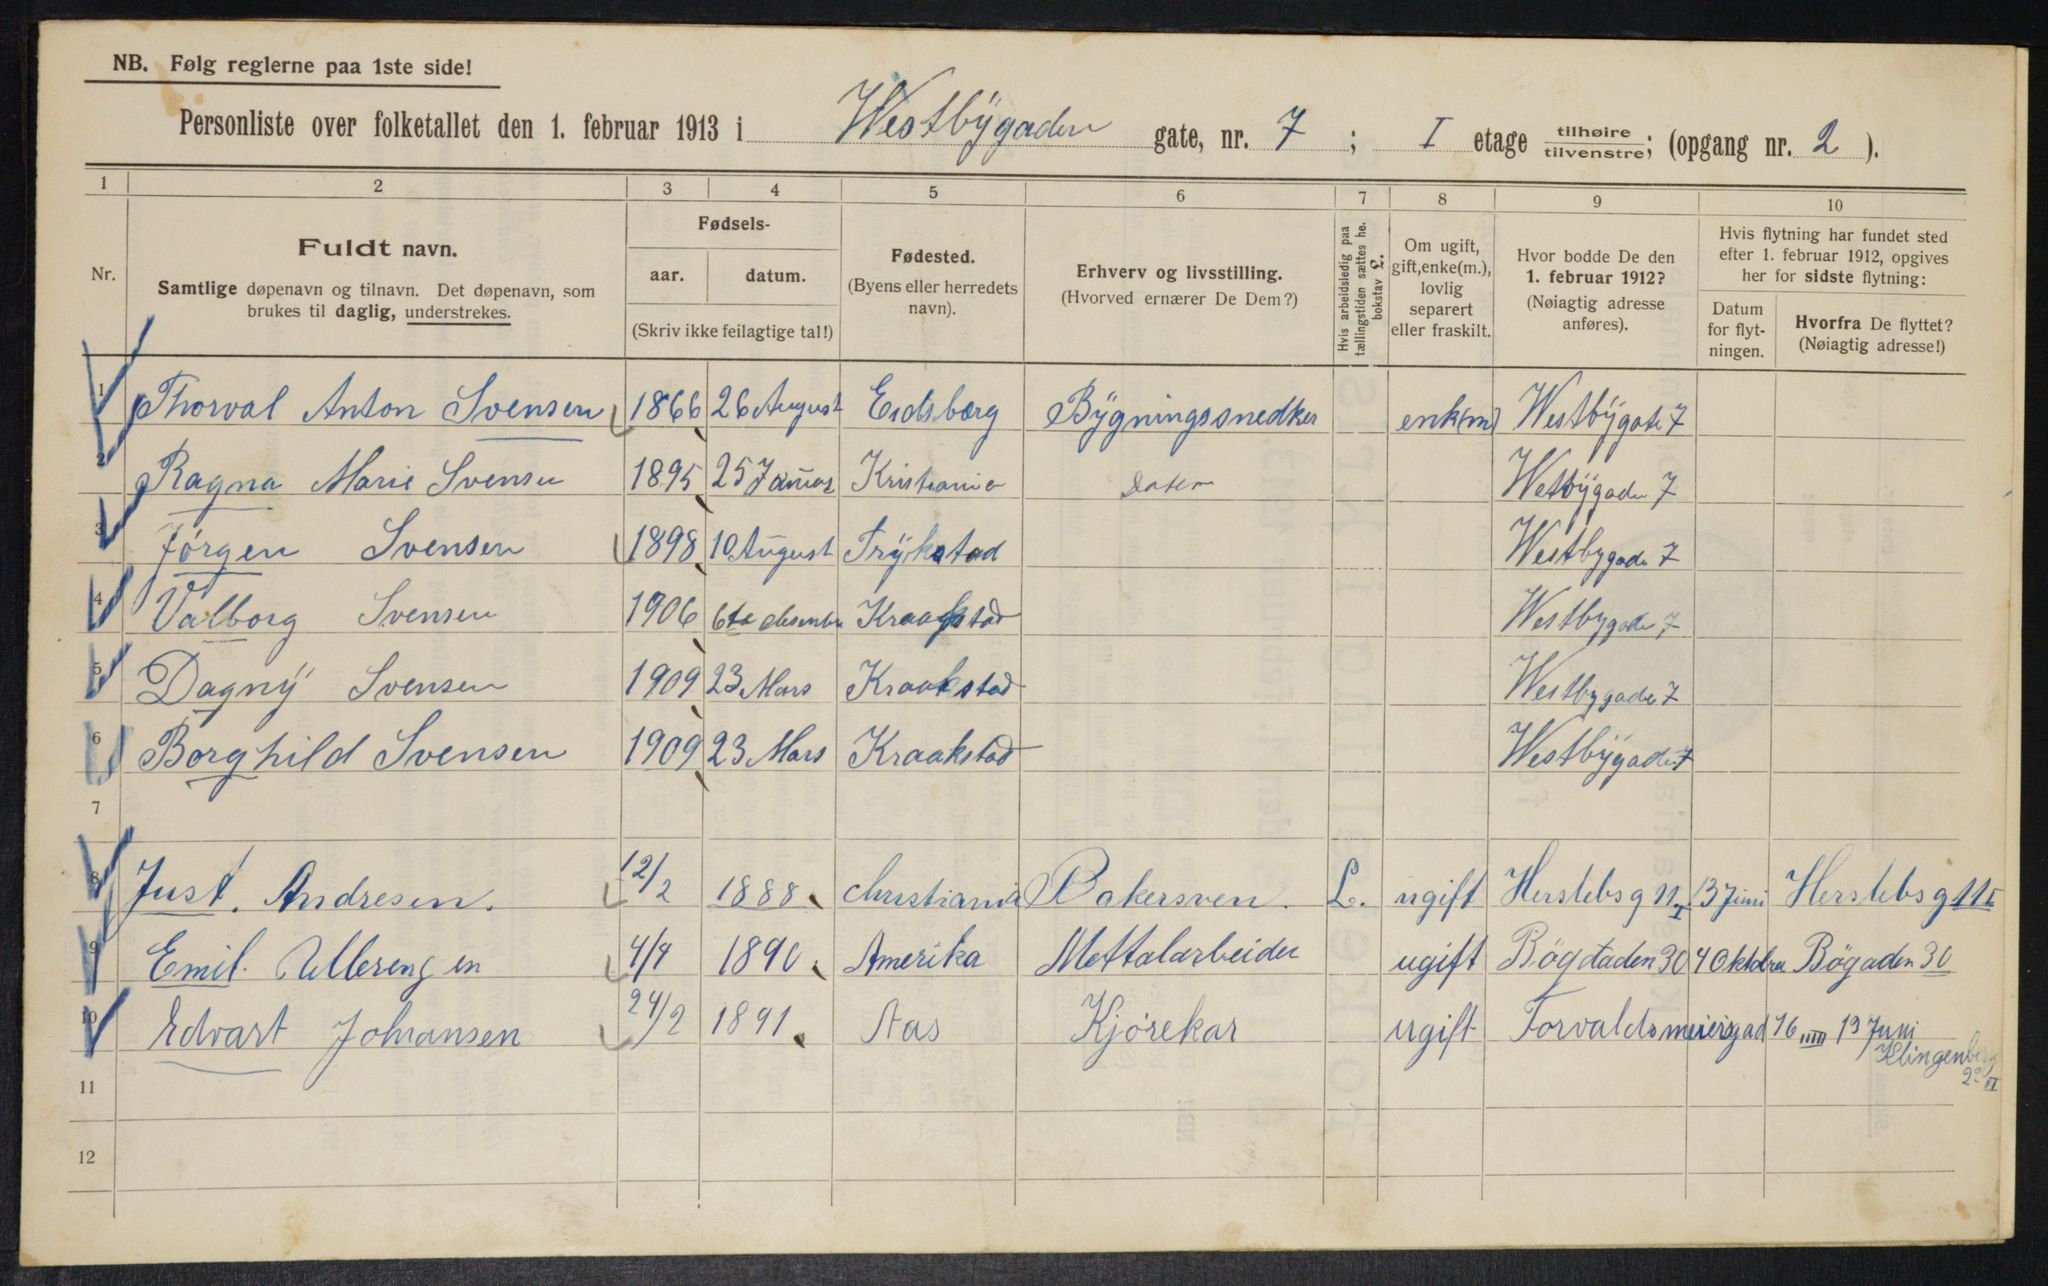 NB. Følg reglerne paa 1ste side!
Personliste over folketallet den 1. februar 1913 i Westbÿgaden gate, nr. 7 ; I etage tilhøire / tilvenstre; (opgang nr. 2 ).
1 2 3 4 5 6 7 8 9 10
Nr.
Fuldt navn.
Samtlige døpenavn og tilnavn. Det døpenavn, som
brukes til daglig, understrekes.
Fødsels-
aar. datum.
(Skriv ikke feilagtige tal!)
Fødested.
(Byens eller herredets
navn).
Erhverv og livsstilling.
(Hvorved ernærer De Dem?)
Hvis arbeidsledig paa
tællingstiden sættes he.
bokstav L.
Om ugift,
gift, enke(m.),
lovlig
separert
eller fraskilt.
Hvor bodde De den
1. februar 1912?
(Nøiagtig adresse
anføres).
Hvis flytning har fundet sted
efter 1. februar 1912, opgives
her for sidste flytning:
Datum
for flyt-
ningen.
Hvorfra De flyttet?
(Nøiagtig adresse!)
1 Thorval Anton Svensen 1866 26 August Eidsberg Bÿgningssnedker enk(m) Westbÿgate 7
2 Ragna Marie Svensen 1895 25 Januar Kristiania Dater Wetbÿgaden 7
3 Jørgen Svensen 1898 10 August Trÿkstad Westbygade 7
4 Valborg Svensen 1906 6te desember Kraakstad Westbygade 7
5 Dagnÿ Svensen 1909 23 Mars Kraakstad Westbygade 7
6 Borghild Svensen 1909 23 Mars Kraakstad Westbÿgade 7
7
8 Just. Andresen. 12/2 1888 Christiania Bakersven. L. ugift Herslebsg 11 I 13 Juni Herslebsg 11 I
9 Emil. Ullerengen 4/4 1890 Amerika Mettalarbeider ugift Bögdaden 30 4 Oktober Bögaden 30
10 Edvart Johansen 24/2 1891 Aas Kjørekar ugift Torvaldsmeiersgad 76 IIII 13 Juni
Klingenberg
2 II
11
12